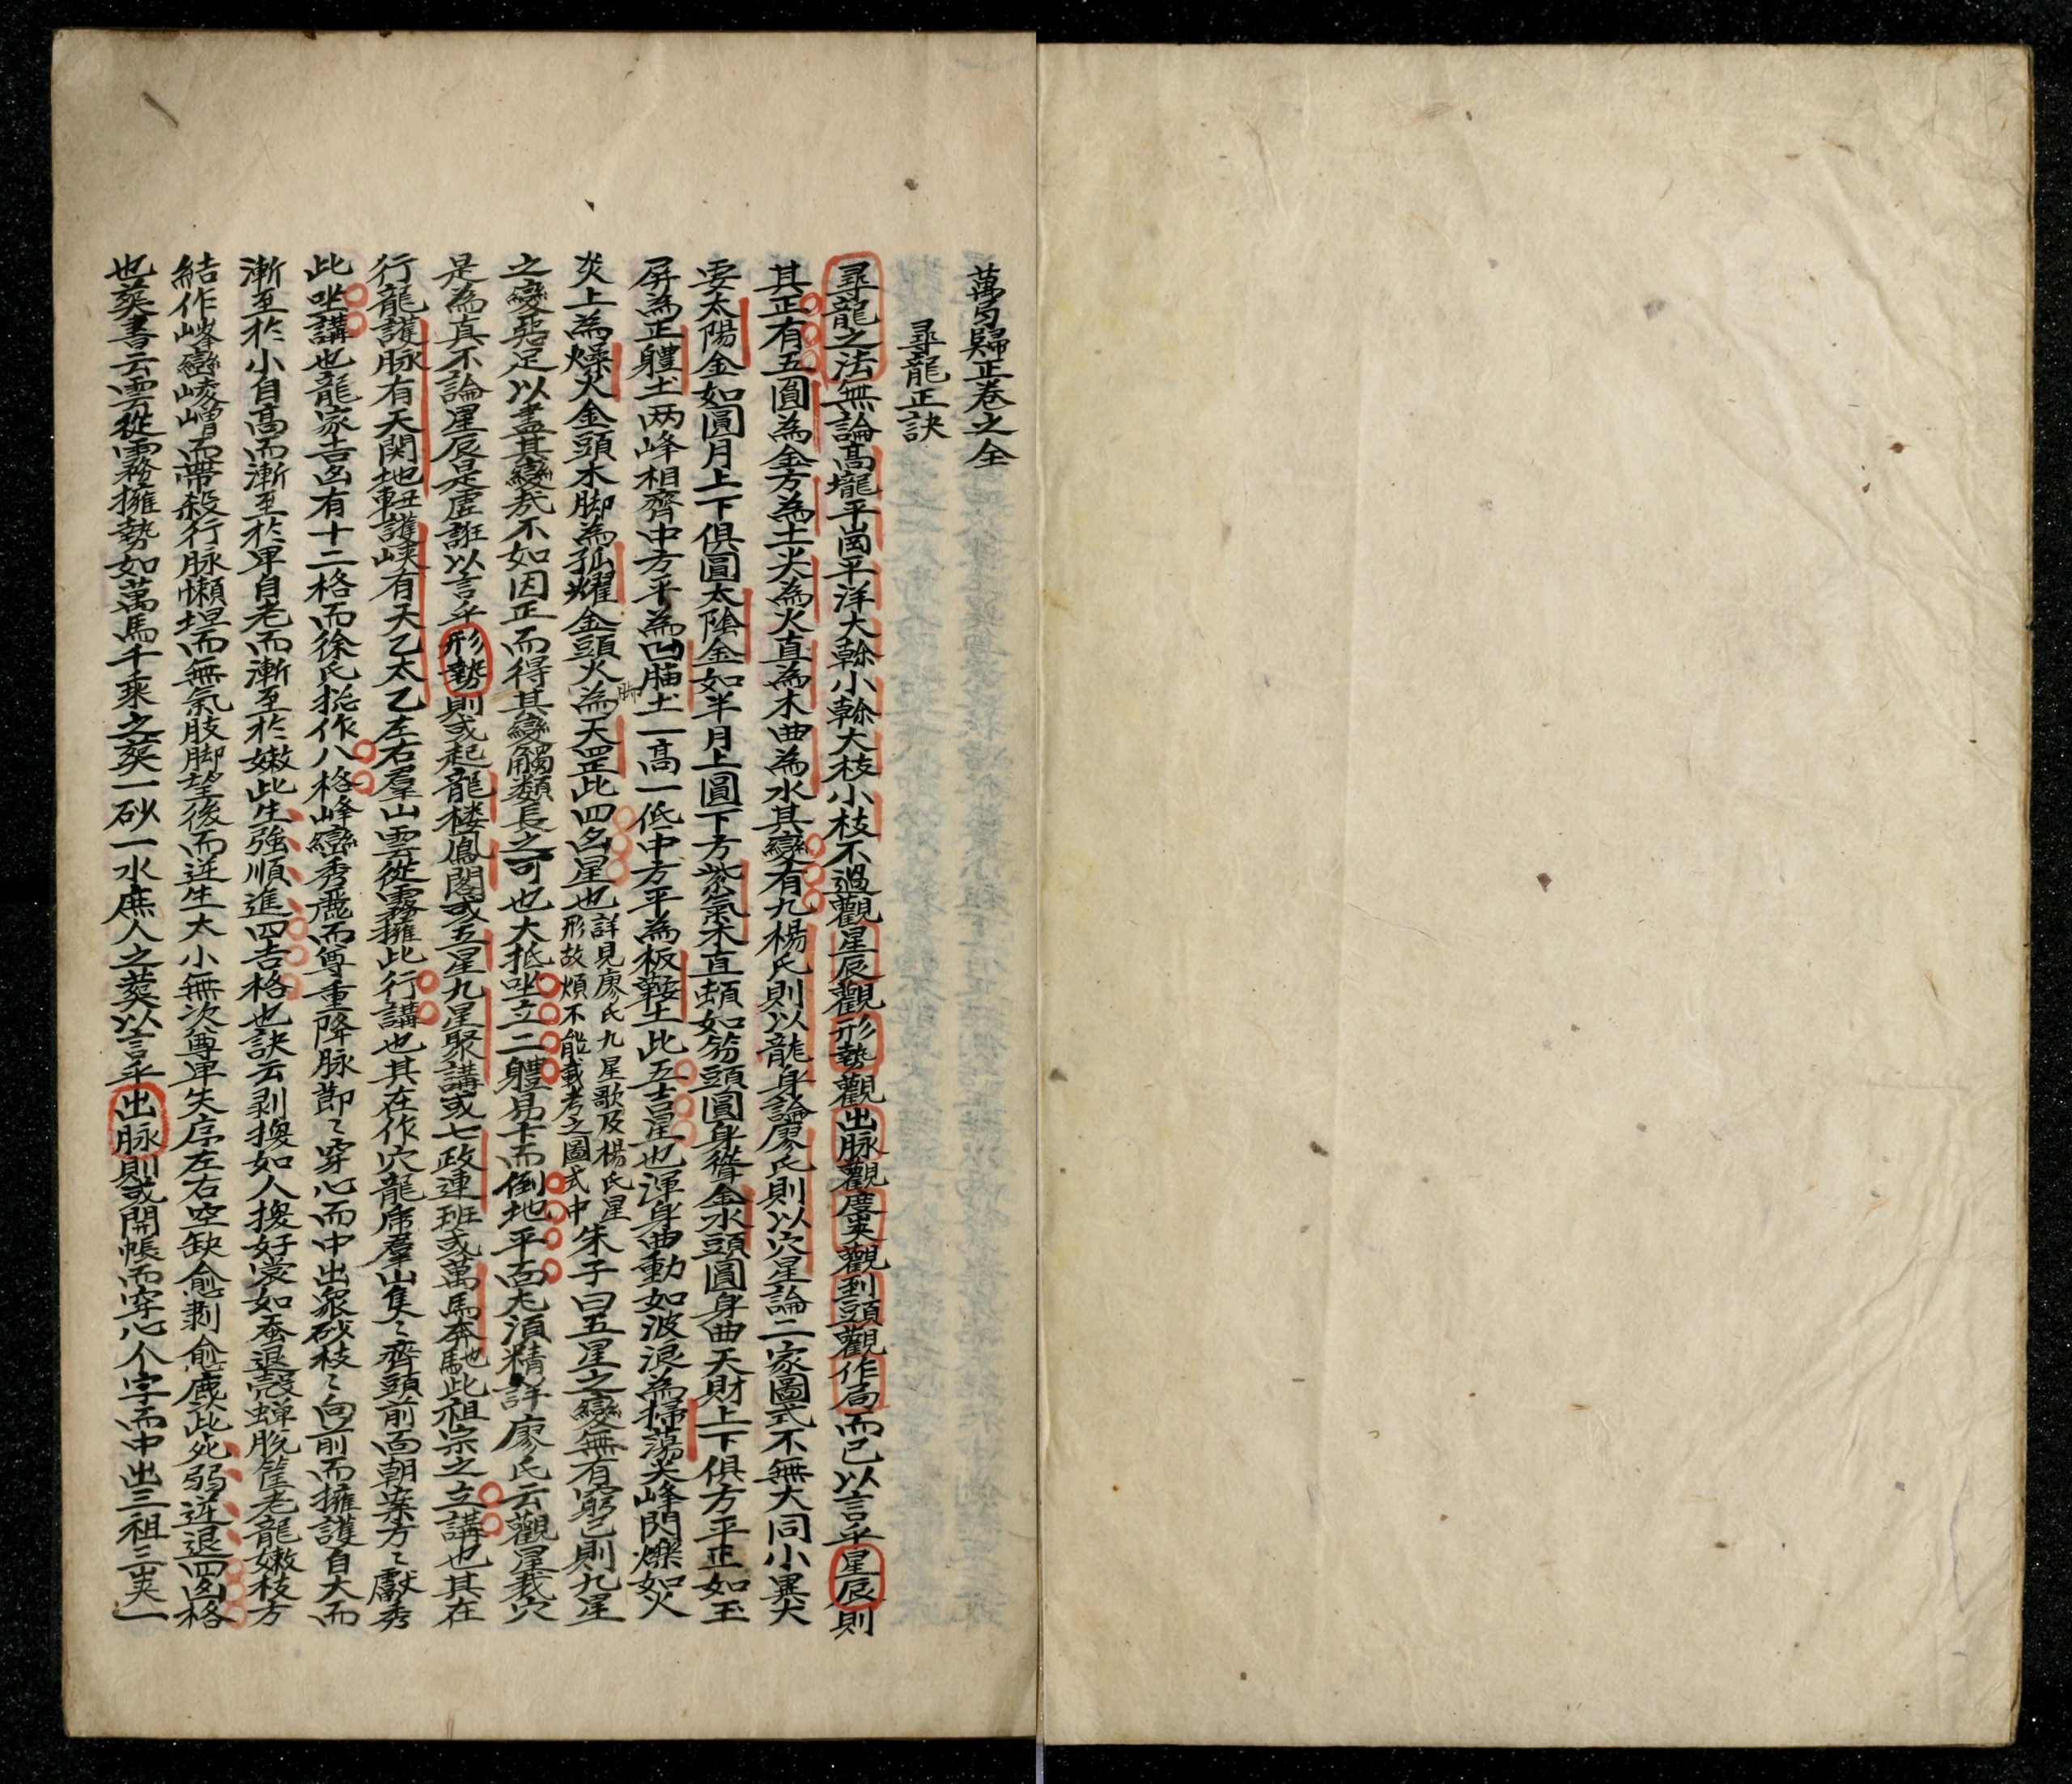 萬勻歸正卷之全
尋龍正訣
尋龍之法無論高壠平崗平洋大幹小幹大枝小枝不過觀星辰觀形勢觀出脉觀度峽觀到頭觀作局而已以言乎星辰則
其正有五圓為金方為土尖為火直為木曲為水其變有九楊氏則以龍身論廖氏則以穴星論二家圖式不無大同小異大
要太陽金如圓月上下俱圓太陰金如半月上圓下方紫氣木直頓如笏頭圓身聳金水頭圓身曲天財上下俱方平正如玉
屏為正軆土两峰相齊中方平為凹腦土一高一低中方平為板鞍土此五吉星也渾身曲動如波浪為掃蕩尖峰閃爍如火
炎上為燥火金頭木脚為孤耀金頭火脚為天罡此四凶星也詳見廖氏九星歌及楊氏星形故煩不能載考之圖式中朱子曰五星之變無有窮已則九星
之變曷足以盡其變哉不如因正而得其變觸類長之可也大抵坐立二軆易卞而倒地平面尤湏精詳廖氏云觀星裁穴
是為真不論星辰是虛誑以言乎形勢則或起龍楼鳳閣或五星九星聚講或七政連班或萬馬奔馳也此祖宗之立講也其在
行龍護脉有天関地軸護峽有天乙太乙左右羣山雲從霧擁此行講也其在作穴龍席羣山集〻齊頭前面朝案方〻獻秀
此坐講也龍家吉凶有十二格而徐氏揔作八格峰巒秀麗而尊重降脉節〻穿心而中出衆砂枝〻向前而擁護自大而
漸至於小自高而漸至於卑自老而漸至於嫩此生強順進四吉格也訣云剥換如人換好裳如蚕退殼蟬脫筐老龍嫩枝方
結作峰巒崚嶒而帶殺行脉懶坦而無氣肢脚望後而逆生大小無次尊卑失序左右空缺愈剥愈麁此死弱逆退四凶格
也葬書云雲從霧擁勢如萬馬千乘之葬一砂一水庶人之葬以言乎出脉則或開帳而穿心个字而中出三祖三峽一